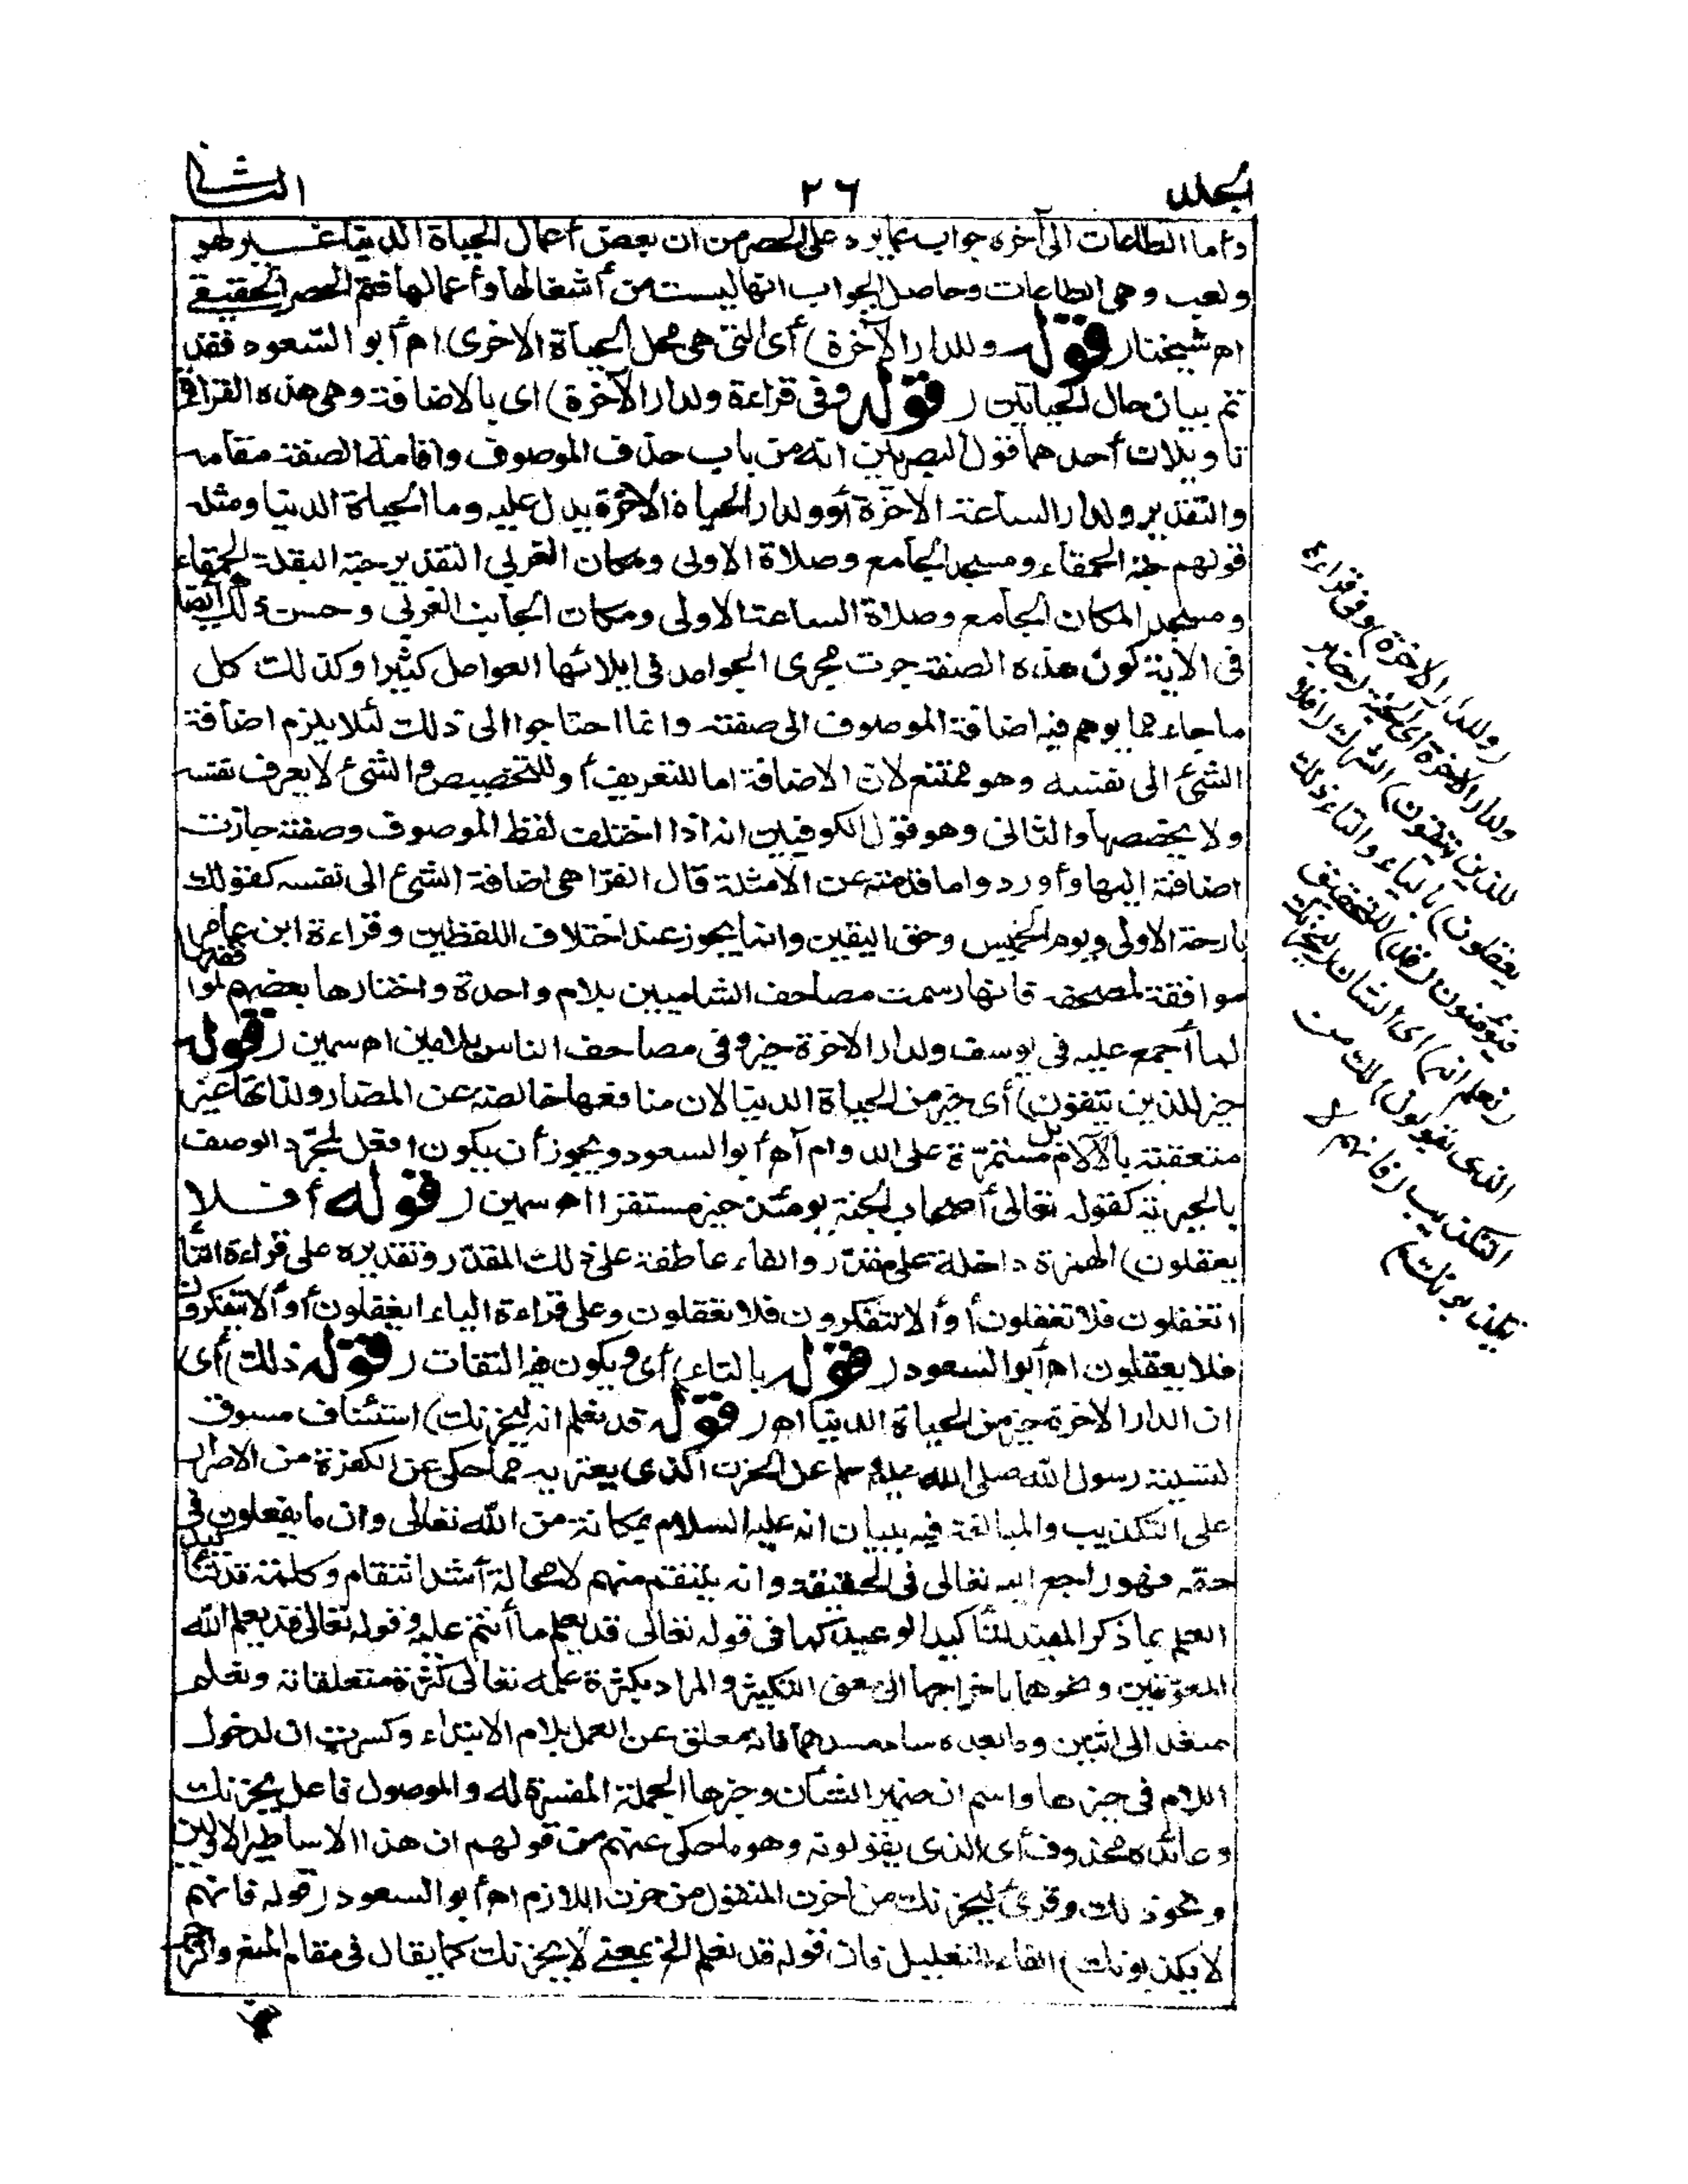 المجلد ٢٦ الثانى
وأما الطاعات الى آخره جواب عما يرد على الحصر من ان بعض أعمال الحياة الدنيا غير لهو
ولعب وهى الطاعات وحاصل الجواب انها ليست من أشغالها وأعمالها فتم الحصر الحقيقى
اه شيخنا (قوله وللدار الآخرة) أى التى هى محل الحياة الاخرى اه أبو السعود فقد
تم بيان حال الحياتين (قوله وفى قراءة ولدار الآخرة) اى بالاضافة وفى هذه القراءة
تأويلات أحدهما قول البصريين انه من باب حذف الموصوف واقامة الصفة مقامه
والتقدير ولدار الساعة الاخرة أو ولدار الحياة الاخرة يدل عليه وما الحياة الدنيا ومثله
قولهم حبة الحمقاء ومسجد الجامع وصلاة الاولى ومكان الغربى التقدير حبة البقلة الحمقاء
ومسجد المكان الجامع وصلاة الساعة الاولى ومكان الجانب الغربى وحسن ذلك أيضا
فى الآية كون هذه الصفة جرت مجرى الجوامد فى ايلائها العوامل كثيرا وكذلك كل
ما جاء مما يوهم فيه اضافة الموصوف الى صفته وانما احتاجوا الى ذلك لئلا يلزم اضافة
الشئ الى نفسه وهو ممتنع لان الاضافة اما للتعريف أو للتخصيص والشئ لا يعرف نفسه
ولا يخصصها والثانى وهو قول الكوفيين انه اذا اختلف لفظ الموصوف وصفته جازت
اضافته اليها وأوردوا ما قدمته من الامثلة قال الفرا هى اضافة الشئ الى نفسه كقولك
بارحة الاولى ويوم الخميس وحق اليقين وانما يجوز عند اختلاف اللفظين وقراءة ابن عامر
موافقة لمصحفه فانها رسمت مصاحف الشاميين بلام واحدة واختارها بعضهم لموافقتها
لما أجمع عليه فى يوسف ولدار الاخرة خير وفى مصاحف الناس بلامين اه سمين (قوله
خير للذين يتقون) أى خير من الحياة الدنيا لان منافعها خالصة عن المضار ولذاتها غير
متعقبة بالآلام بل مستمرة على الدوام اه أبو السعود ويجوز أن يكون افعل لمجرد الوصف
بالخيرية كقوله تعالى أصحاب الجنة يومئذ خير مستقرا اه سمين (قوله أفلا
يعقلون) الهمزة داخلة على مقدر والفاء عاطفة على ذلك المقدر وتقديره على قراءة التاء
اتغفلون فلا تعقلون أو ألا تتفكرون فلا تعقلون وعلى قراءة الياء ايغفلون أو ألا يتفكرون
فلا يعقلون اه أبو السعود (قوله بالتاء) أى ويكون فيه التفات (قوله ذلك) أى
ان الدار الاخرة خير من الحياة الدنيا اه (قوله قد نعلم انه ليحزنك) استئناف مسوق
لتسلية رسول الله صلى الله عليه وسلم عن الحزن الذى يعتريه مما حكى عن الكفرة من الاصرار
على التكذيب والمبالغة فيه ببيان انه عليه السلام بمكانة من الله تعالى وان ما يفعلون فى
حقه فهو راجع اليه تعالى فى الحقيقة وانه ينتقم منهم لا محالة أشد انتقام وكلمة قد لتأكيد
العلم بما ذكر المفيد لتأكيد الوعيد كما فى قوله تعالى قد يعلم ما أنتم عليه وقوله تعالى قد يعلم الله
المعوقين ونحوهما باخراجها الى معنى التكثير والمراد بكثرة علمه تعالى كثرة متعلقاته ونعلم
متعد الى اثنين وما بعده ساد مسدهما فانه معلق عن العمل بلام الابتداء وكسرت ان لدخول
اللام فى خبرها واسم ان ضمير الشأن وخبرها الجملة المفسرة له والموصول فاعل يحزنك
وعائده محذوف أى الذى يقولونه وهو ما حكى عنهم من قولهم ان هذا الا اساطير الاولين
ونحو ذلك وقرئ ليحزنك من احزن المنقول من حزن اللازم اه أبو السعود (قوله فانهم
لا يكذبونك) الفاء للتعليل فان قوله قد نعلم الخ بمعنى لا يحزنك كما يقال فى مقام المنع والزجر
(وللدار الاخرة) وفى قراءة
ولدار الاخرة اى الجنة (خير
للذين يتقون) الشرك (افلا
يعقلون) بالياء والتاء ذلك
فيؤمنون (قد) للتحقيق
(نعلم انه) اى الشان (ليحزنك
الذى يقولون) لك من
التكذيب (فانهم لا
يكذبونك)